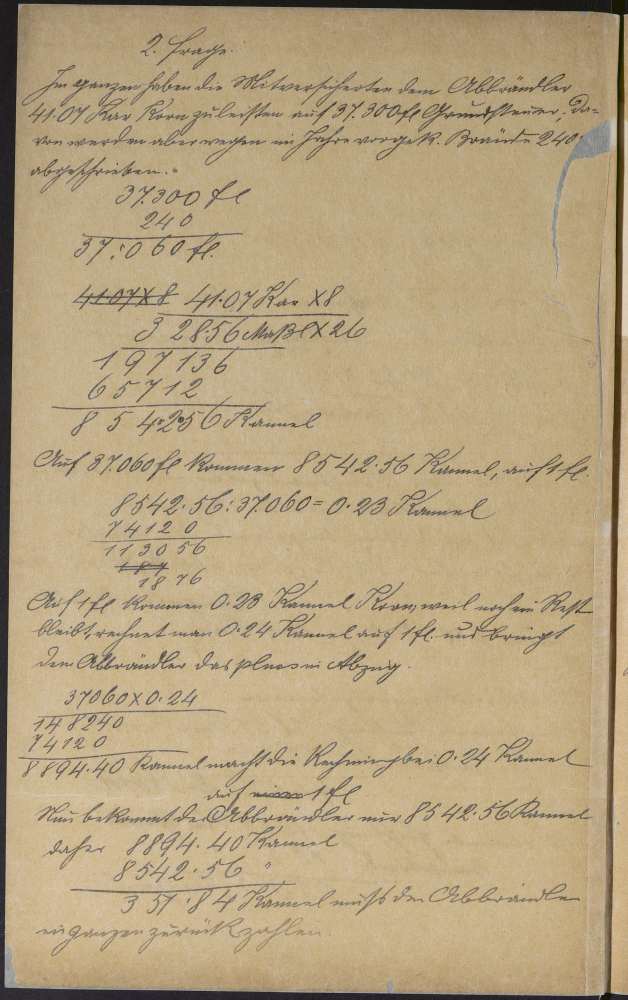 2. Frage.
Im ganzen haben die Mitversicherten dem Abbrändler
41.07 Kar Korn zu leisten auf 37.300 fl Grundsteuer, Da-
von werden aber wegen im Jahre vorgek. Brände 240
abgeschrieben.
37.300 fl
240
37.060 fl.
41.07 X 8 41.07 Kar X 8
3 28.56 Maßl X 26
197136
65712
8 5 4.2.56 Kannel
Auf 37.060 fl kommen 8542.56 Kannel, auf 1 fl.
8542.56 : 37.060 = 0.23 Kannel
74120
113056
187
1876
Auf 1 fl kommen 0.23 Kannel Korn, weil noch ein Rest
bleibt, rechnet man 0.24 Kannel auf 1 fl. und bringt
dem Abbrändler das plus in Abzug.
37060 X 0.24
148240
74120
8894.40 Kannel macht die Rechnung bei 0.24 Kannel
auf einen 1 fl
Nun bekommt der Abbrändler nur 8542.56 Kannel
daher 8894.40 Kannel
8542.56 "
351.84 Kannel muß der Abbrändler
im ganzen zurück zahlen.